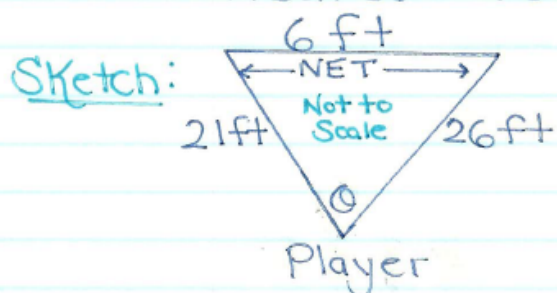 6 ft
Sketch:
NET
Not to
Scale
21ft
26ft
θ
Player